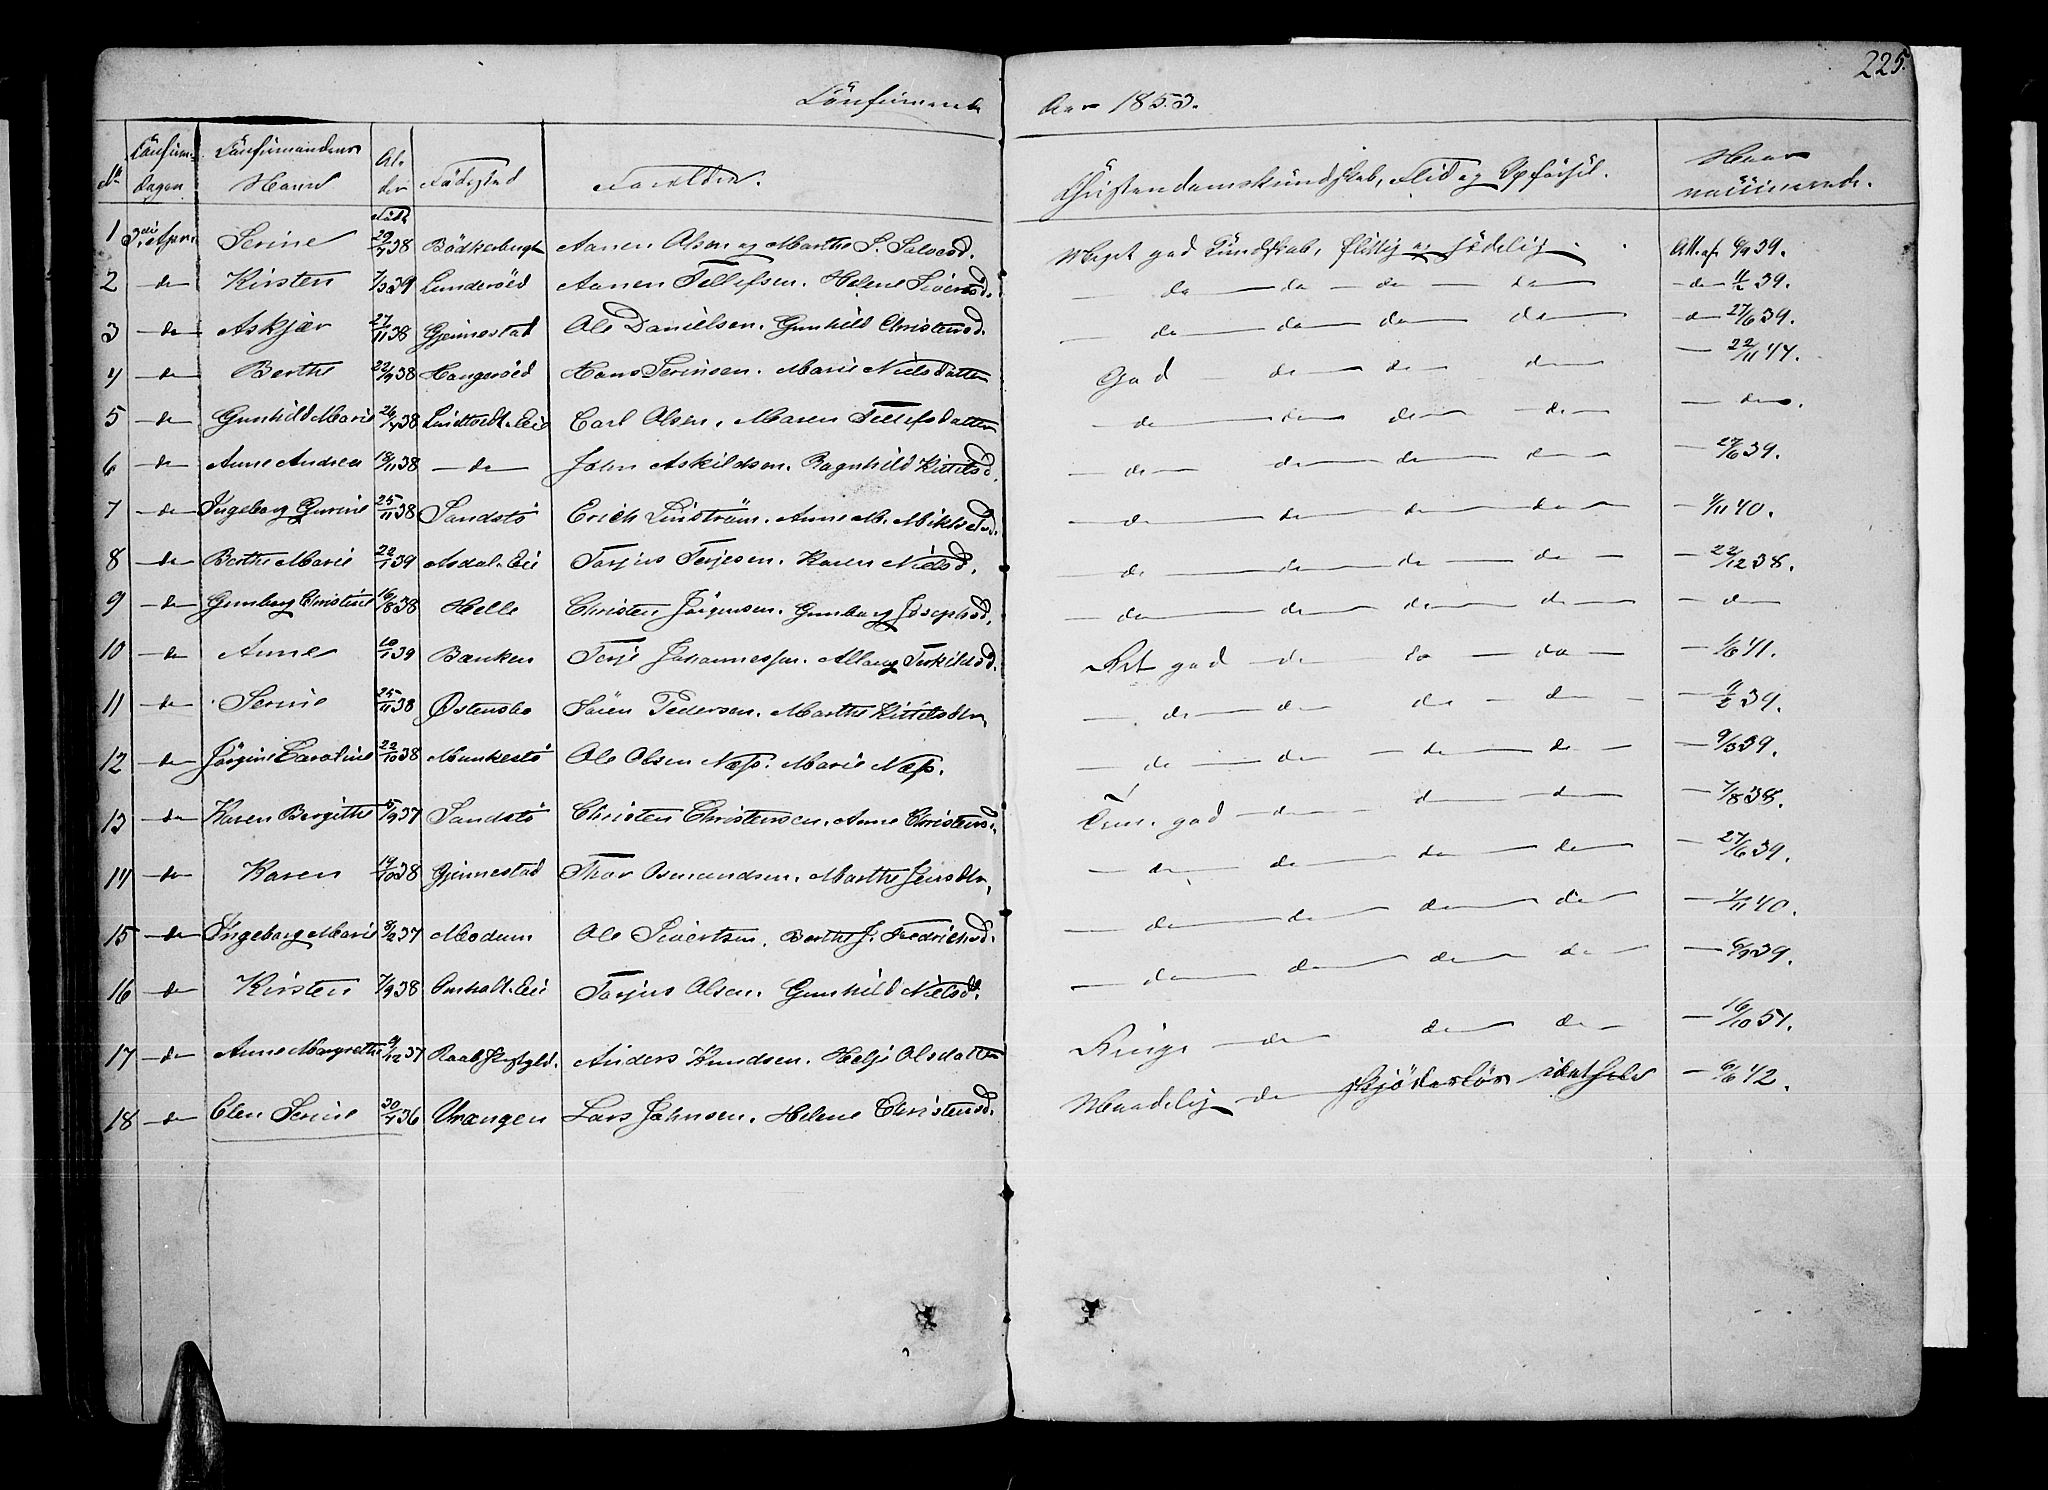 225.
Confirmerede Aar 1853.
No Confirm. dagen Confirmandens Navn Alder Födested Forældre. Christendomskundskab, Flid og Opförsel. Naar vaccinerede.
1 3die April Serine Födt 29/4 38 Aanen Olsen og Marthe S. Salvesd. Meget god Kundskab, flittig og sædelig. Att. af 6/9 39.
2 do Kirsten 7/3 39 Lunderöed Aanen Tellefsen. Helene Sivertsd. do do do do do 11/2 39.
3 do Askjær 27/11 38 Gjennestad Ole Danielsen. Gunhild Christensd. do do do do do 27/6 39.
4 do Berthe 22/9 38 Haugeröed Hans Sörensen. Marie Nielsdatter God do do do 22/11 47.
5 do Gunhild Marie 26/4 38 Lindtvedt. Eie Carl Olsen. Maren Tellefsdatter do do do do do.
6 do Anne Andrea 18/11 38 do John Askildsen. Ragnhild Kittelsd. do do do do 27/6 39.
7 do Ingeborg Gurine 25/11 38 Sandstö Erich Linström. Anne M. Mikkelsd. do do do do 9/11 40.
8 do Berthe Marie 22/1 39 Asdal. Eie Torjus Terjesen. Karen Nielsd. do do do do 22/12 38.
9 do Gunborg Christine 16/8 38 Helle Christen Jörgensen. Gunborg Josephsd. do do do do do
10 do Anne 10/1 39 Banken Terje Johannessen. Alborg Terkildsd. Ret god do do do 1/6 41.
11 do Serine 25/11 38 Østensbo Sören Pedersen. Marthe Kittelsdtr. do do do do 11/2 39.
12 do Jörgine Caroline 22/10 38 Munkestö Ole Olsen Næss. Marie Næss. do do do do 9/3 39.
13 do Karen Bergithe 5/9 37 Sandstö Christen Christensen. Anne Christensd. Tem. god do do do 7/8 38.
14 do Karen 14/10 38 Gjennestad Thor Osmundsen. Marthe Jensdtr. do do do do 27/6 39.
15 do Ingeborg Marie 8/2 37 Modum Ole Sivertsen. Berthe J. Fredrichsd. do do do do 1/11 40.
16 do Kirsten 7/9 38 Omholt. Eie Torjus Olsen. Gunhild Nielsd. do do do do 6/9 39.
17 do Anne Margrethe 9/12 37 Anders Knudsen. Helje Olsdatter Ringe do do do 16/10 51.
18 do Elen Serine 30/4 36 Vrangen Lars Johnsen. Helene Christensd. Maadelig do skjödeslös idethele 6/6 42.